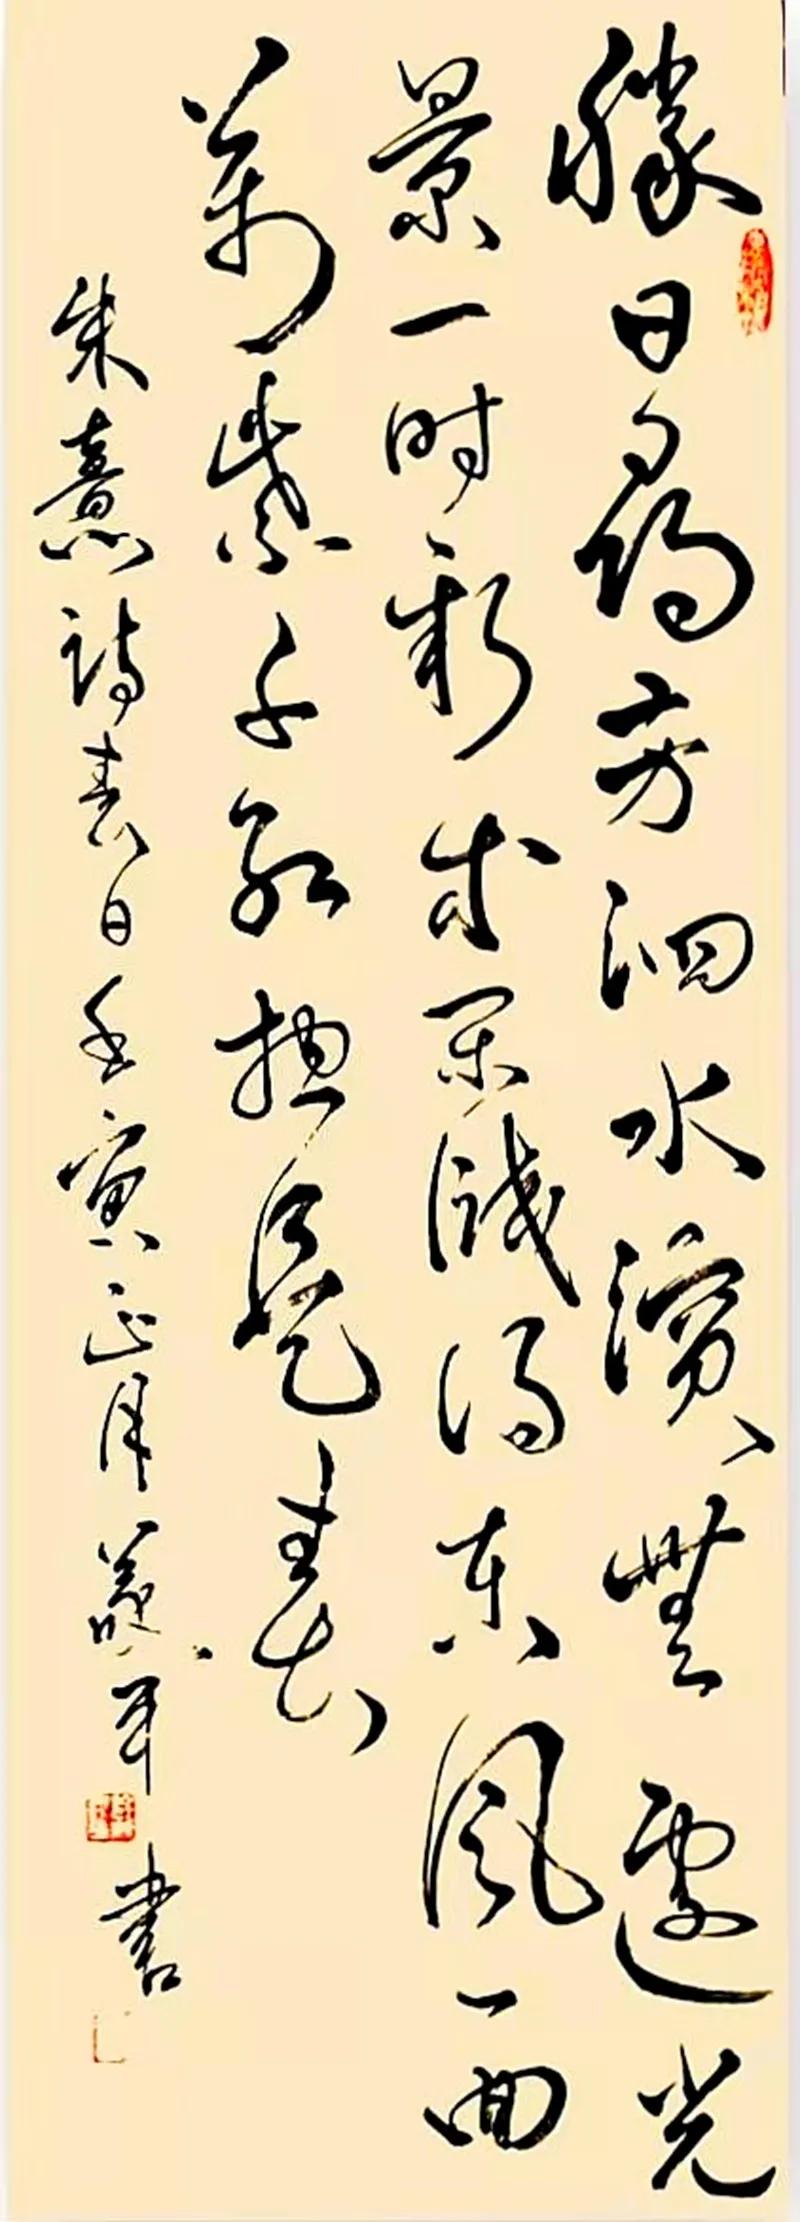 勝日尋芳泗水濱無邊光
景一时新等閑識得東風面
萬紫千紅總是春
朱熹詩春日壬寅正月書